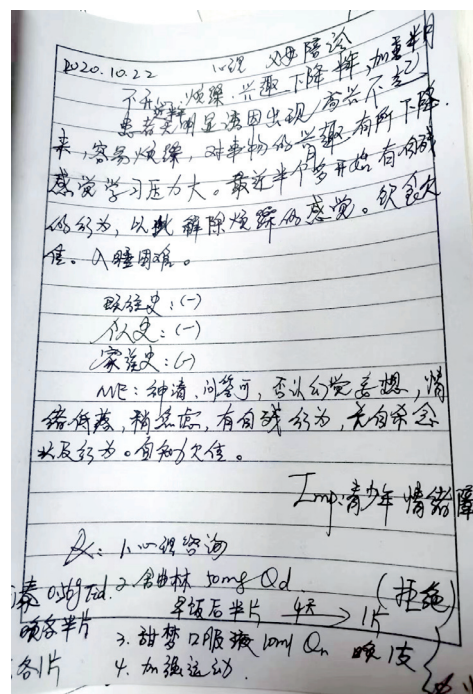 2020.10.22 心理 父母陪诊
不开心、烦躁、兴趣下降半年,加重半月
患者无明显诱因出现高兴不起
来,容易烦躁,对事物的兴趣有所下降.
感觉学习压力大。最近半个多月开始有自残
的行为,以此解除烦躁的感觉。饮食欠
佳。入睡困难。
既往史:(一)
个人史:(一)
家族史:(一)
ME:神清,问答可,否认幻觉妄想,情
绪低落,稍焦虑,有自残行为,无自杀念
头及行为。自知力欠佳。
Imp:青少年情绪障
R:1.心理咨询
2.舍曲林 50mg Qd. (拒绝)
早饭后半片 4天→1片
晚各半片
3.甜梦口服液 10ml Qn 晚1支
各1片 4.加强运动.